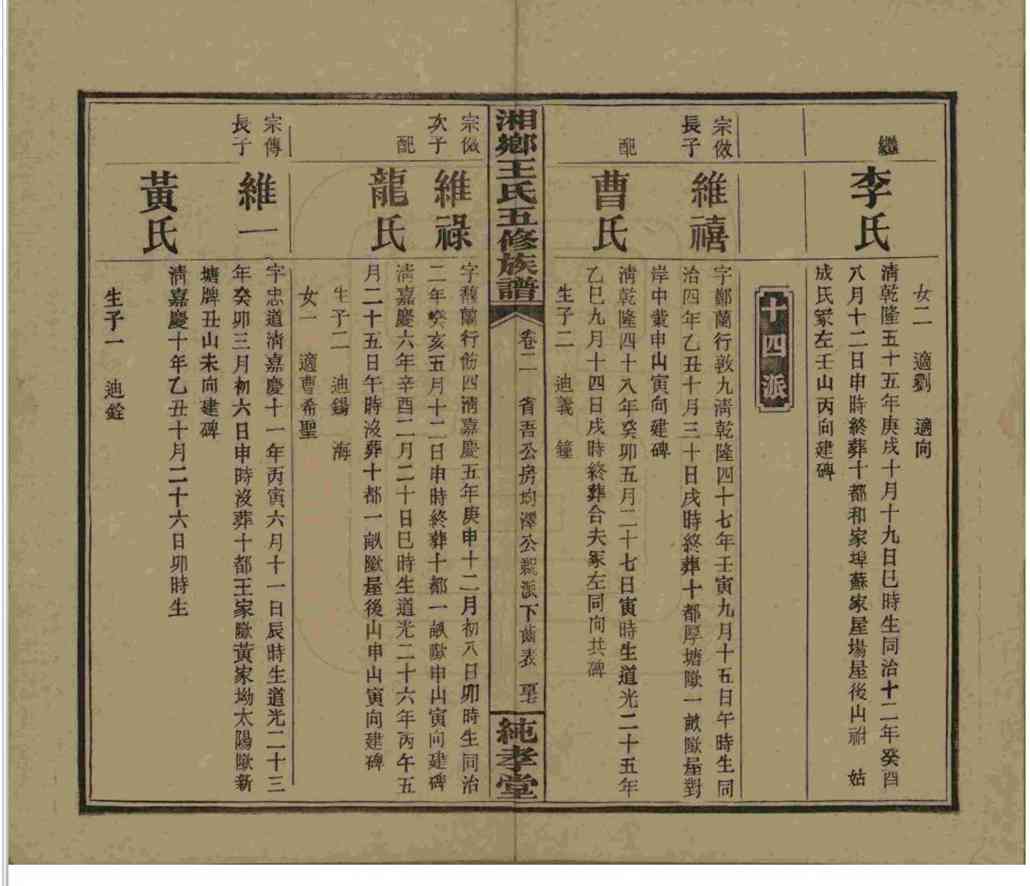 繼
李氏
女二 適劉 適向
清乾隆五十五年庚戌十月十九日巳時生同治十二年癸酉
八月十二日申時終葬十都和家埠蘇家屋塲屋後山祔姑
成氏冢左壬山丙向建碑
十四派
宗倣
長子
維禧
字鄭蘭行敦九清乾隆四十七年壬寅九月十五日午時生同
治四年乙丑十月三十日戌時終葬十都厚塘歐一畝歐屋對
岸中嶘申山寅向建碑
配
曹氏
清乾隆四十八年癸卯五月二十七日寅時生道光二十五年
乙巳九月十四日戌時終葬合夫冢左同向共碑
生子二 迪義 鐘
湘鄉王氏五修族譜
卷二 省吾公房均澤公親派下齒表
純孝堂
宗倣
次子
維祿
字馥蘭行飭四清嘉慶五年庚申十二月初八日卯時生同治
二年癸亥五月十二日申時終葬十都一畝歐申山寅向建碑
配
龍氏
清嘉慶六年辛酉二月二十日巳時生道光二十六年丙午五
月二十五日午時沒葬十都一畝歐屋後山申山寅向建碑
生子二 迪錫 海
女一 適曹希聖
宗傳
長子
維一
字忠道清嘉慶十一年丙寅六月十一日辰時生道光二十三
年癸卯三月初六日申時沒葬十都王家歐黃家坳太陽歐新
塘牌丑山未向建碑
黃氏
清嘉慶十年乙丑十月二十六日卯時生
生子一 迪銓